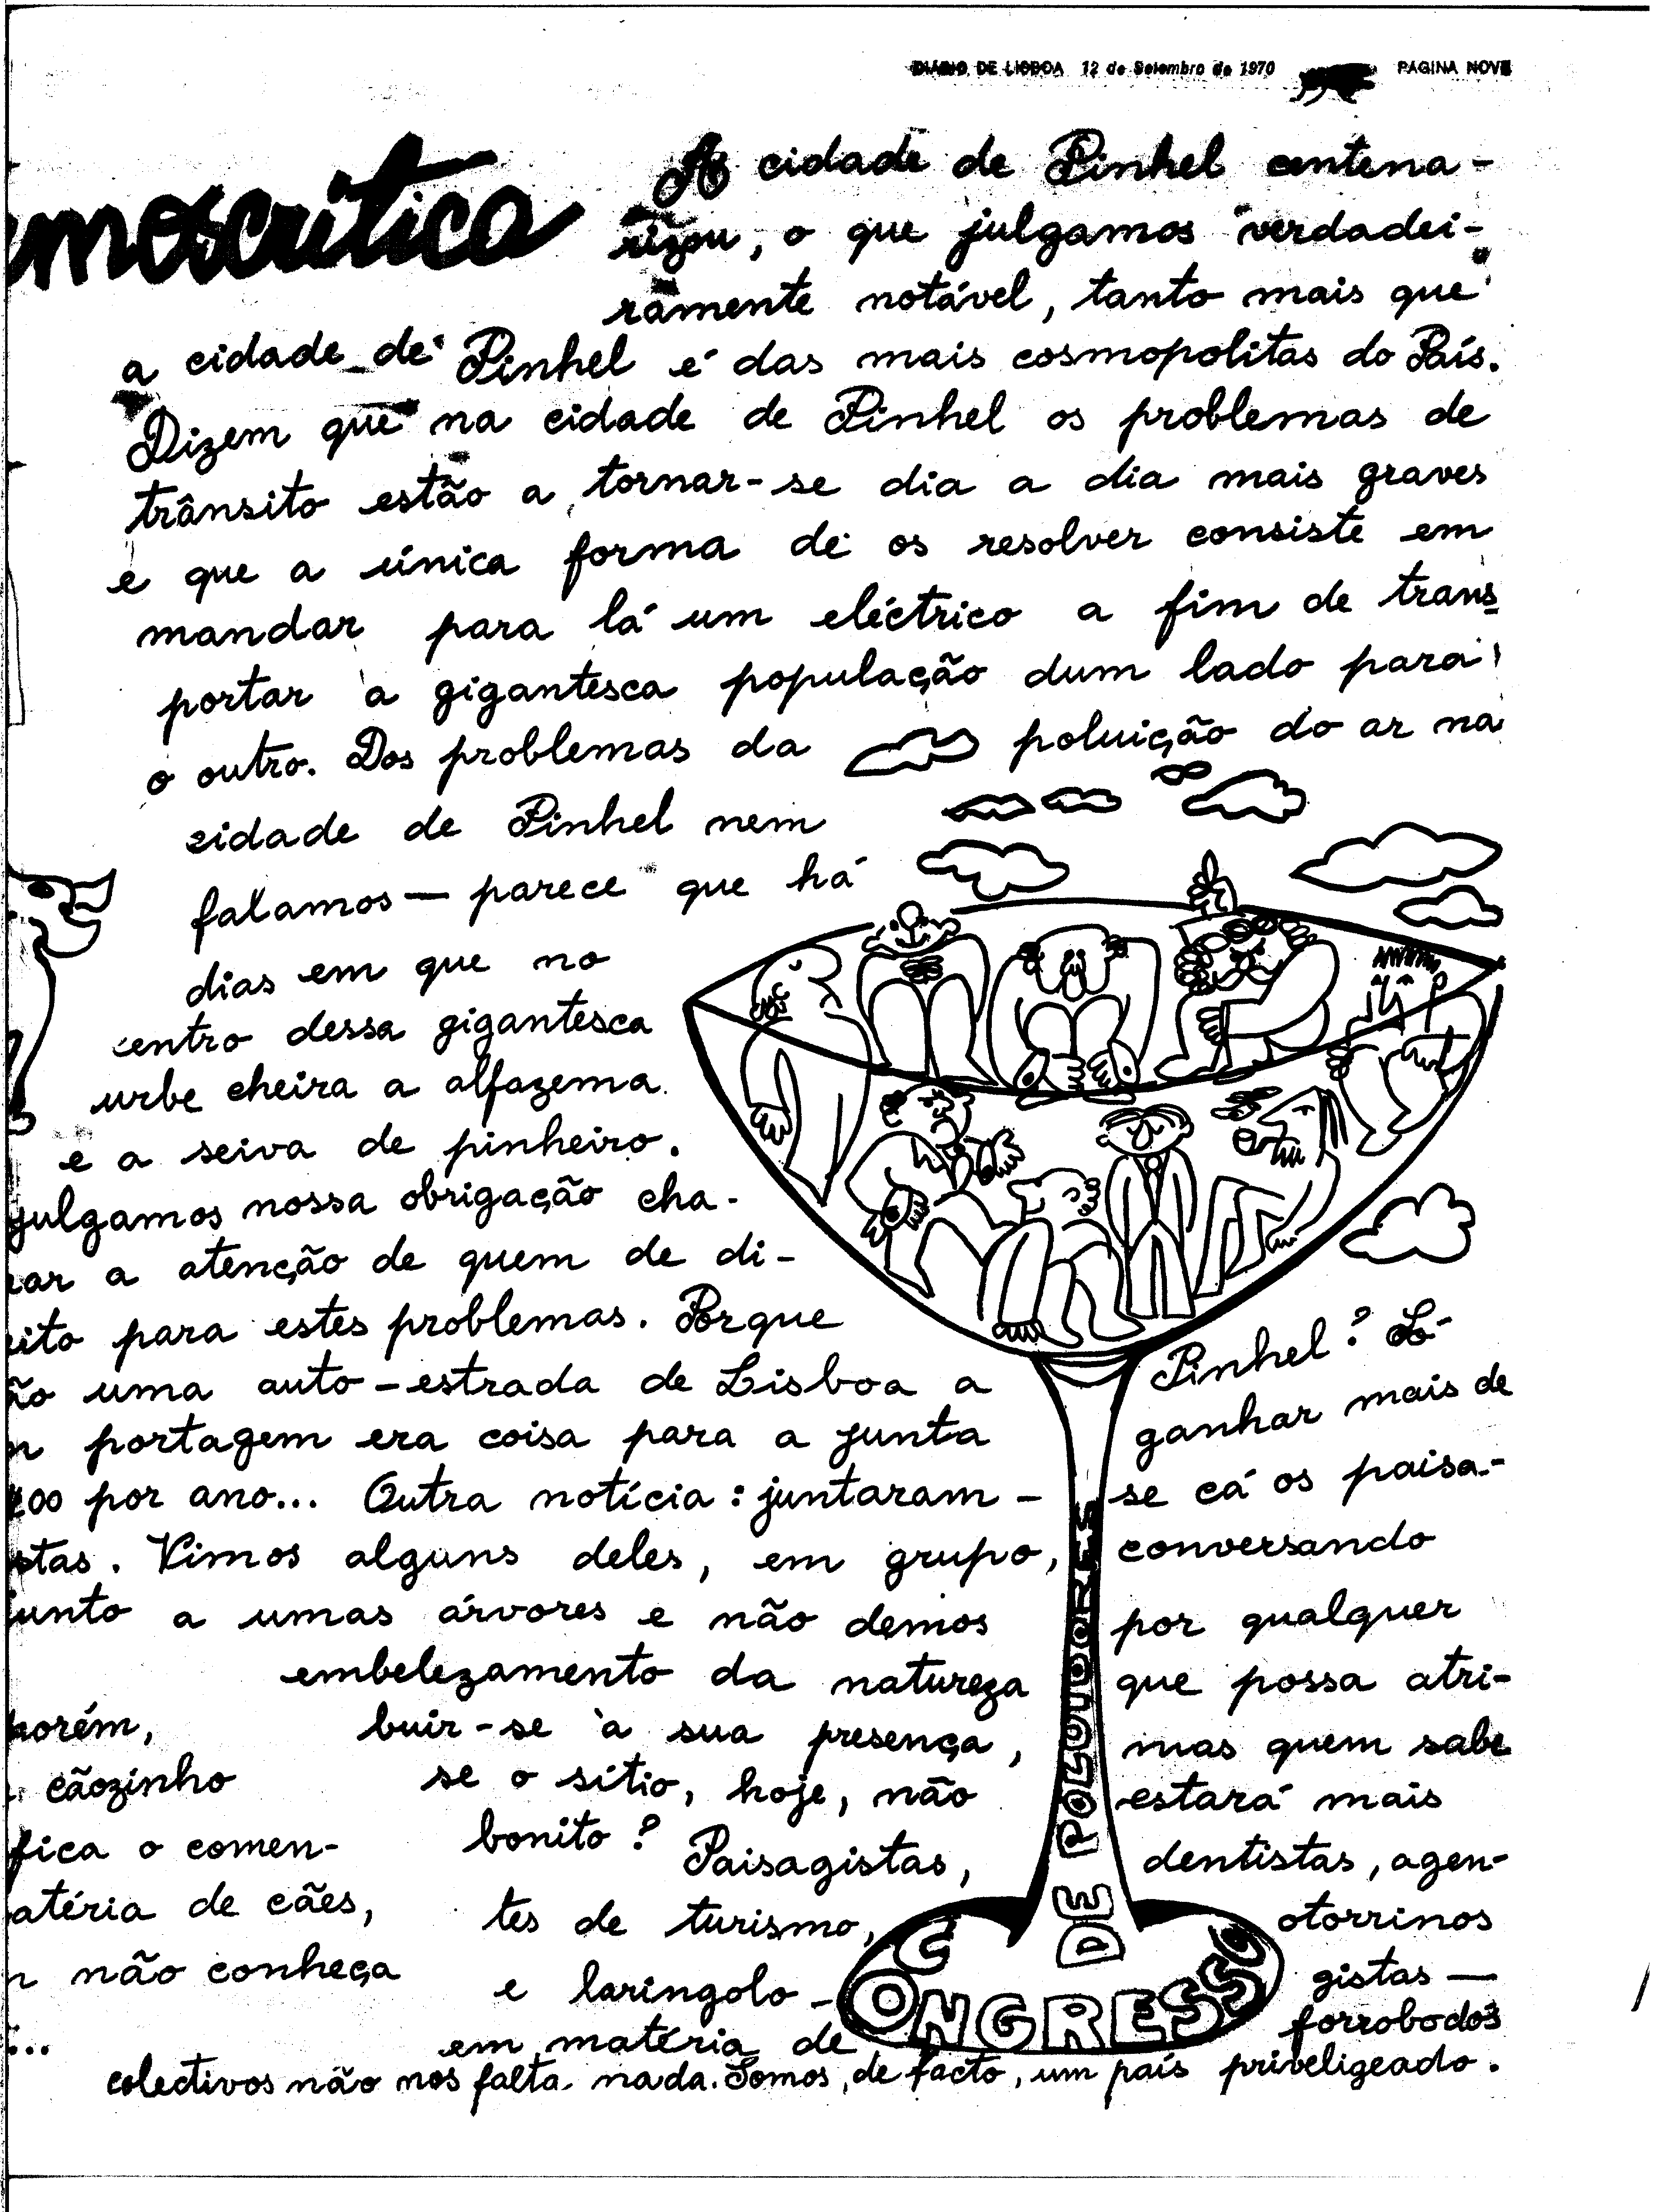 DIÁRIO DE LISBOA 12 de Setembro de 1970 PÁGINA NOVE
moscrítica
A cidade de Pinhel centena-
rizou, o que julgamos verdadei-
ramente notável, tanto mais que
a cidade de Pinhel é das mais cosmopolitas do País.
Dizem que na cidade de Pinhel os problemas de
trânsito estão a tornar-se dia a dia mais graves
e que a única forma de os resolver consiste em
mandar para lá um eléctrico a fim de trans
portar a gigantesca população dum lado para
o outro. Dos problemas da poluição do ar na
cidade de Pinhel nem
falamos — parece que há
dias em que no
centro dessa gigantesca
urbe cheira a alfazema
e a seiva de pinheiro.
julgamos nossa obrigação cha-
ar a atenção de quem de di-
eito para estes problemas. Porque
ão uma auto-estrada de Lisboa a Pinhel? Só
n portagem era coisa para a junta ganhar mais de
00 por ano... Outra notícia: juntaram-se cá os paisa-
stas. Vimos alguns deles, em grupo, conversando
junto a umas árvores e não demos por qualquer
embelezamento da natureza que possa atri-
buir-se à sua presença, mas quem sabe
se o sítio, hoje, não estará mais
bonito? Paisagistas, dentistas, agen-
tes de turismo, otorrinos
e laringolo-gistas —
em matéria de forrobodós
colectivos não nos falta nada. Somos, de facto, um país priveligeado.
horém,
cãozinho
fica o comen-
atéria de cães,
n não conheça
...
CONGRESSO
DE POLUIDORES